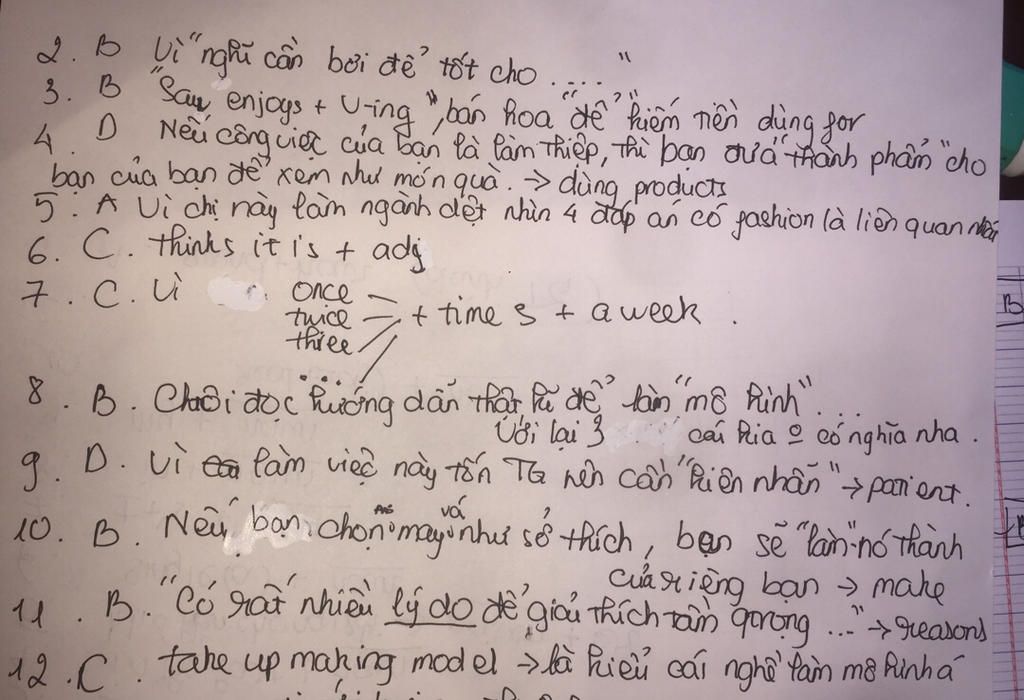 2. B Vì "nghĩ cần bơi để tốt cho ...."
3. B "Sau enjoys + V-ing", bán hoa "để" kiếm tiền dùng for
4. D Nếu công việc của bạn là làm thiệp, thì bạn đưa "thành phẩm" cho
bạn của bạn để xem như món quà. → dùng products
5. A Vì chị này làm ngành dệt nhìn 4 đáp án có fashion là liên quan nhất
6. C. thinks it is + adj
7. C. Vì once
twice + time s + a week.
three
8. B. Chơi đọc hướng dẫn thật kĩ để làm "mô hình"...
Với lại 3 cái kia o có nghĩa nha.
9. D. Vì làm việc này tốn TG nên cần "kiên nhẫn" → patient.
10. B. Nếu bạn chọn may vá như sở thích, bạn sẽ "làm" nó thành
của riêng bạn → make
11. B. "Có rất nhiều lý do để giải thích tầm qtrọng ..." → reasons
12. C. take up making model → là kiểu cái nghề làm mô hình á